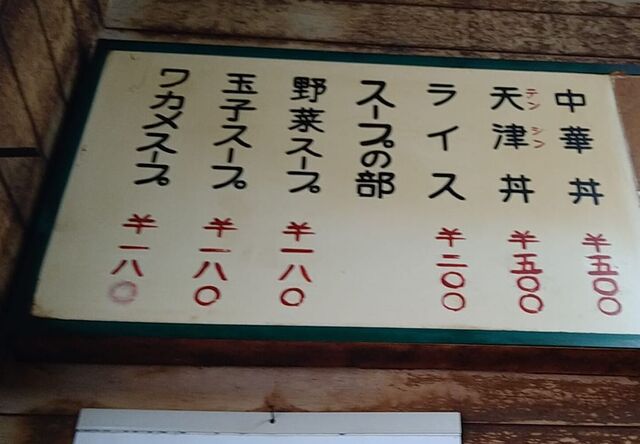 中華丼 ¥五〇〇
天津丼 ¥五〇〇
テンシン
ライス ¥二〇〇
スープの部
野菜スープ ¥一八〇
玉子スープ ¥一八〇
ワカメスープ ¥一八〇